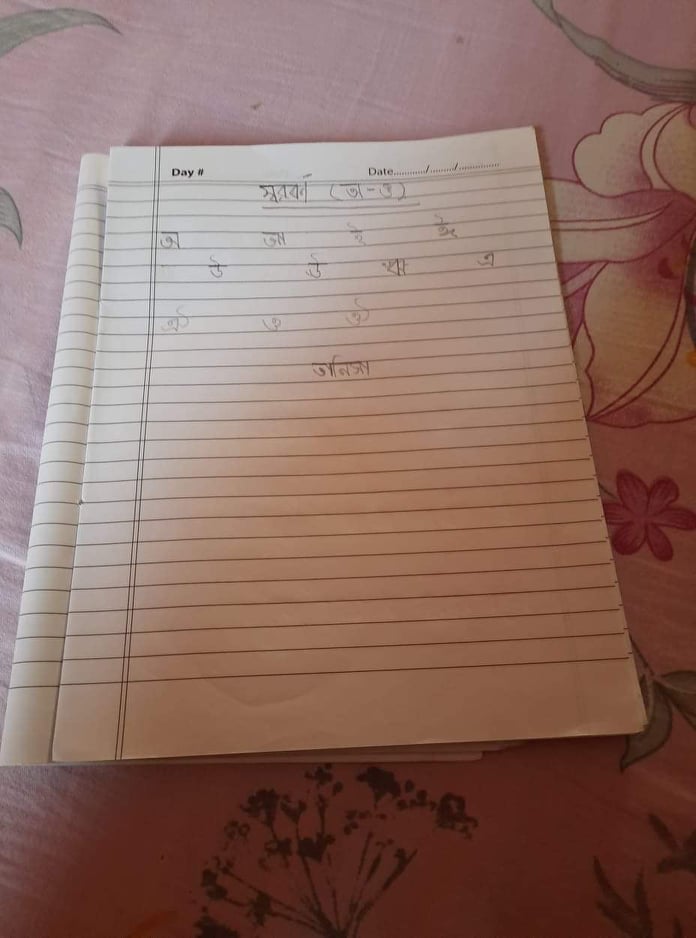 Day #
Date............/........../................
স্বরবর্ণ (অ-ঔ)
অ আ ই ঈ
উ ঊ ঋ এ
ঐ ও ঔ
তানিসা